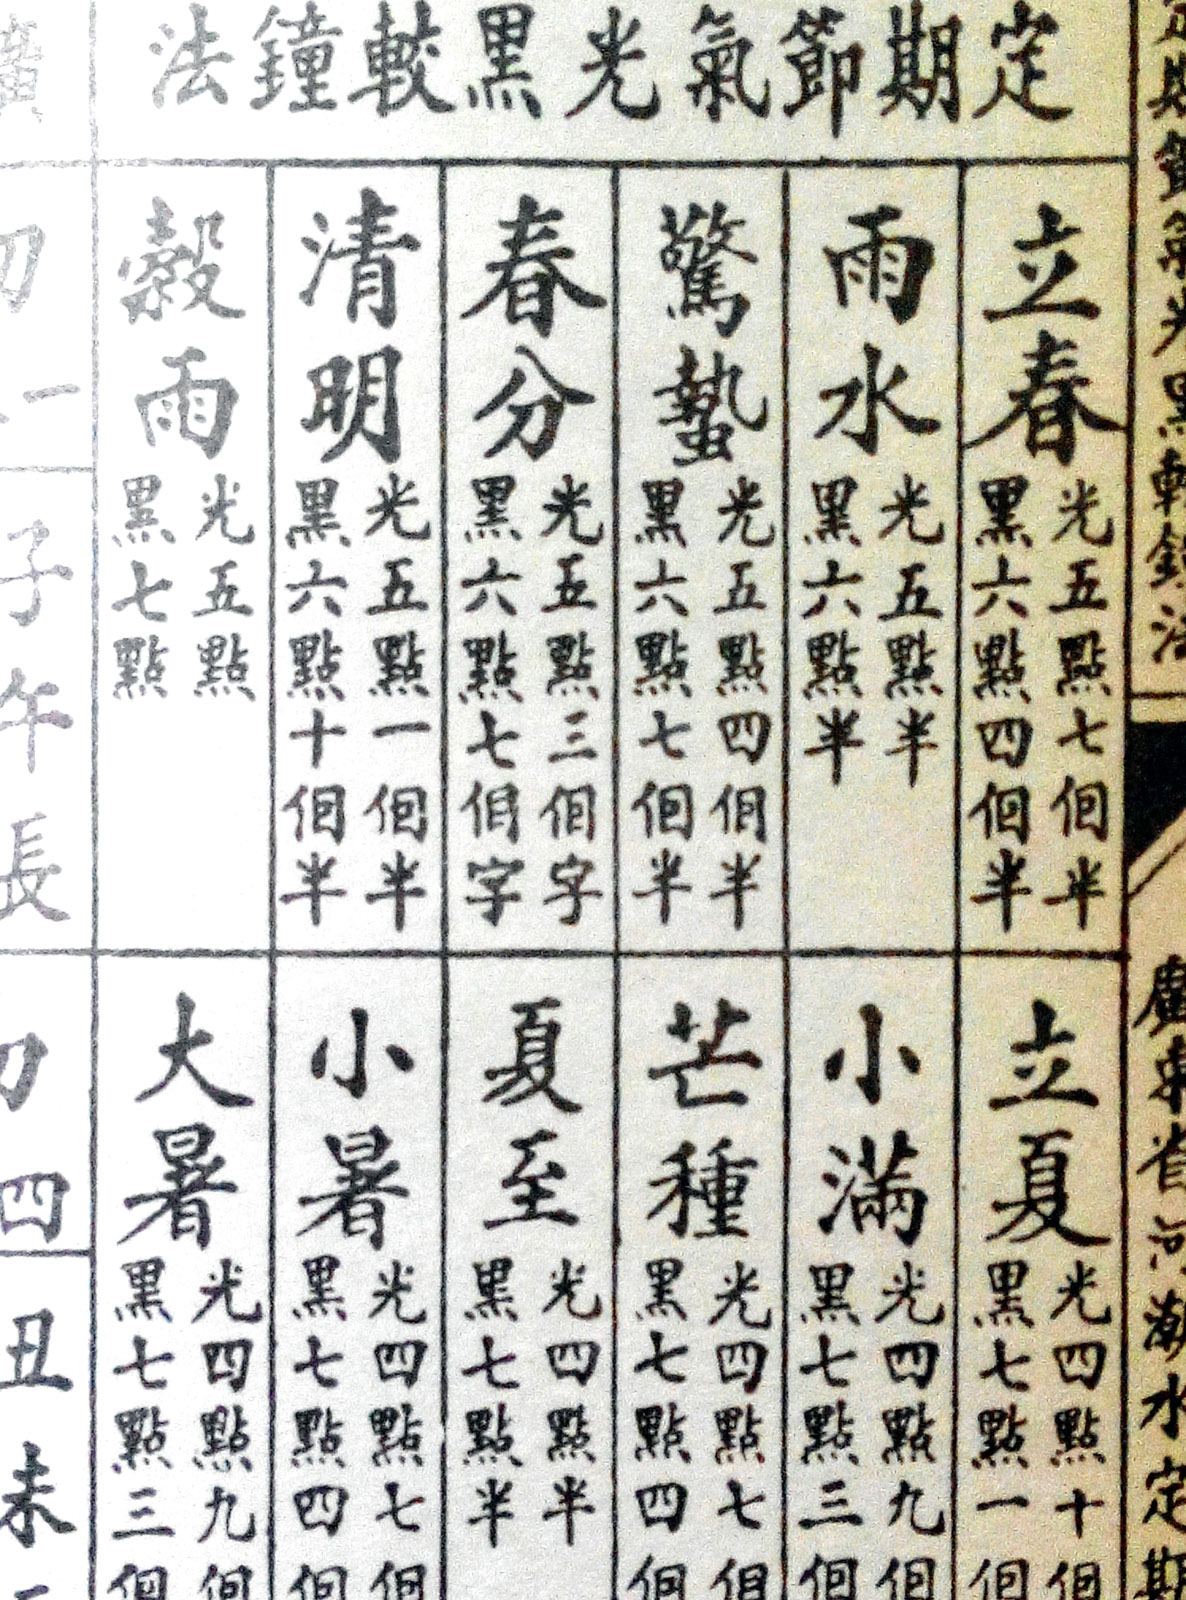 定期節氣光黑較鐘法
立春
光五點七個半
黑六點四個半
雨水
光五點半
黑六點半
驚蟄
光五點四個半
黑六點七個半
春分
光五點三個字
黑六點七個字
清明
光五點一個半
黑六點十個半
穀雨
光五點
黑七點
立夏
光四點十個
黑七點一個
小滿
光四點九個
黑七點三個
芒種
光四點七個
黑七點四個
夏至
光四點半
黑七點半
小暑
光四點七個
黑七點四個
大暑
光四點九個
黑七點三個
定期節氣光黑較鐘法
廣東省河潮水定期
子午長
四
丑未